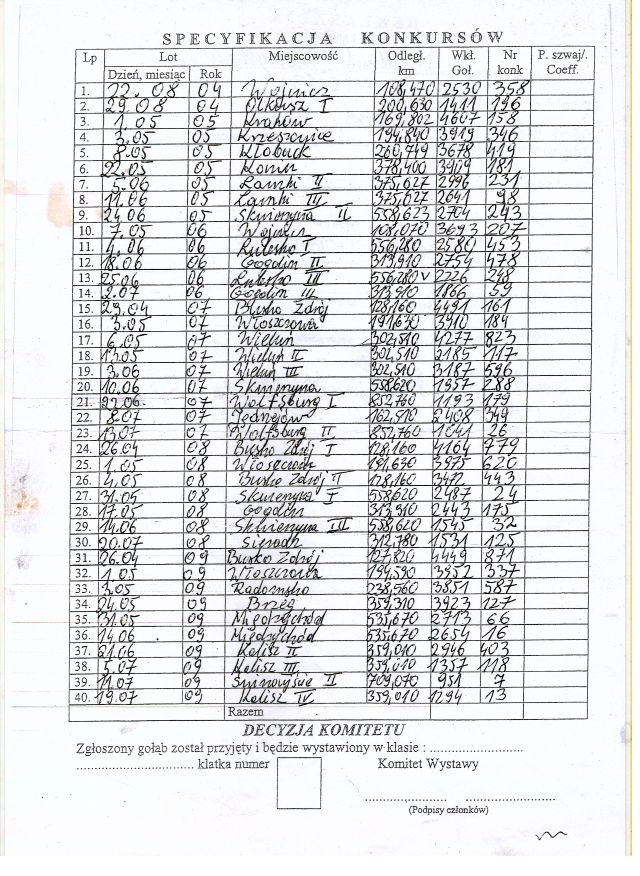 SPECYFIKACJA KONKURSÓW
Lp Lot Miejscowość Odległ. km Wkł. Goł. Nr konk P. szwaj/. Coeff.
Dzień, miesiąc Rok
1. 22.08 04 Wojnicz 108,470 2530 358
2. 29.08 04 Olkusz I 200,630 1411 196
3. 1.05 05 Kraków 169,802 4607 158
4. 3.05 05 Krzeszyce 194,840 3919 346
5. 8.05 05 Kłobuck 260,749 3678 419
6. 22.05 05 Konin 378,400 3909 181
7. 5.06 05 Łamki II 375,627 2996 231
8. 11.06 05 Łamki III 375,627 2641 98
9. 24.06 05 Skwierzyna II 558,623 2704 243
10. 7.05 06 Wojnicz 108,070 3693 207
11. 4.06 06 I 556,280 2580 453
12. 18.06 06 Gogolin II 313,910 2754 478
13. 25.06 06 III 556,280 2226 248
14. 2.07 06 Gogolin III 313,910 1866 59
15. 29.04 07 Busko Zdrój 128,160 4491 161
16. 3.05 07 Włoszczowa 191,630 3910 184
17. 6.05 07 Wieluń 302,510 4277 823
18. 13.05 07 Wieluń II 302,510 2185 117
19. 3.06 07 Wieluń III 302,510 3187 596
20. 10.06 07 Skwierzyna 558,620 1957 288
21. 22.06 07 Wolfsburg I 852,760 1193 179
22. 8.07 07 Jędrzejów 162,510 2408 349
23. 13.07 07 Wolfsburg II 852,760 1041 26
24. 26.04 08 Busko Zdrój I 128,160 4164 779
25. 1.05 08 Włoszczowa 194,630 3975 620
26. 4.05 08 Busko Zdrój II 128,160 3472 443
27. 31.05 08 Skwierzyna I 558,620 2487 24
28. 17.05 08 Gogolin 313,910 2443 175
29. 14.06 08 Skwierzyna III 558,620 1545 32
30. 20.07 08 Sieradz 312,780 1531 125
31. 26.04 09 Busko Zdrój 127,820 4449 871
32. 1.05 09 Włoszczowa 194,590 3952 337
33. 3.05 09 Radomsko 238,560 3851 587
34. 24.05 09 Brzeg 359,310 3923 127
35. 31.05 09 Międzychód 535,670 2713 66
36. 14.06 09 Międzychód 535,670 2654 16
37. 21.06 09 Kalisz II 359,010 2946 403
38. 5.07 09 Kalisz III 359,010 1357 118
39. 11.07 09 Świnoujście II 709,070 951 7
40. 19.07 09 Kalisz IV 359,010 1294 13
Razem
DECYZJA KOMITETU
Zgłoszony gołąb został przyjęty i będzie wystawiony w klasie : ........................
.............................. klatka numer Komitet Wystawy
(Podpisy członków)